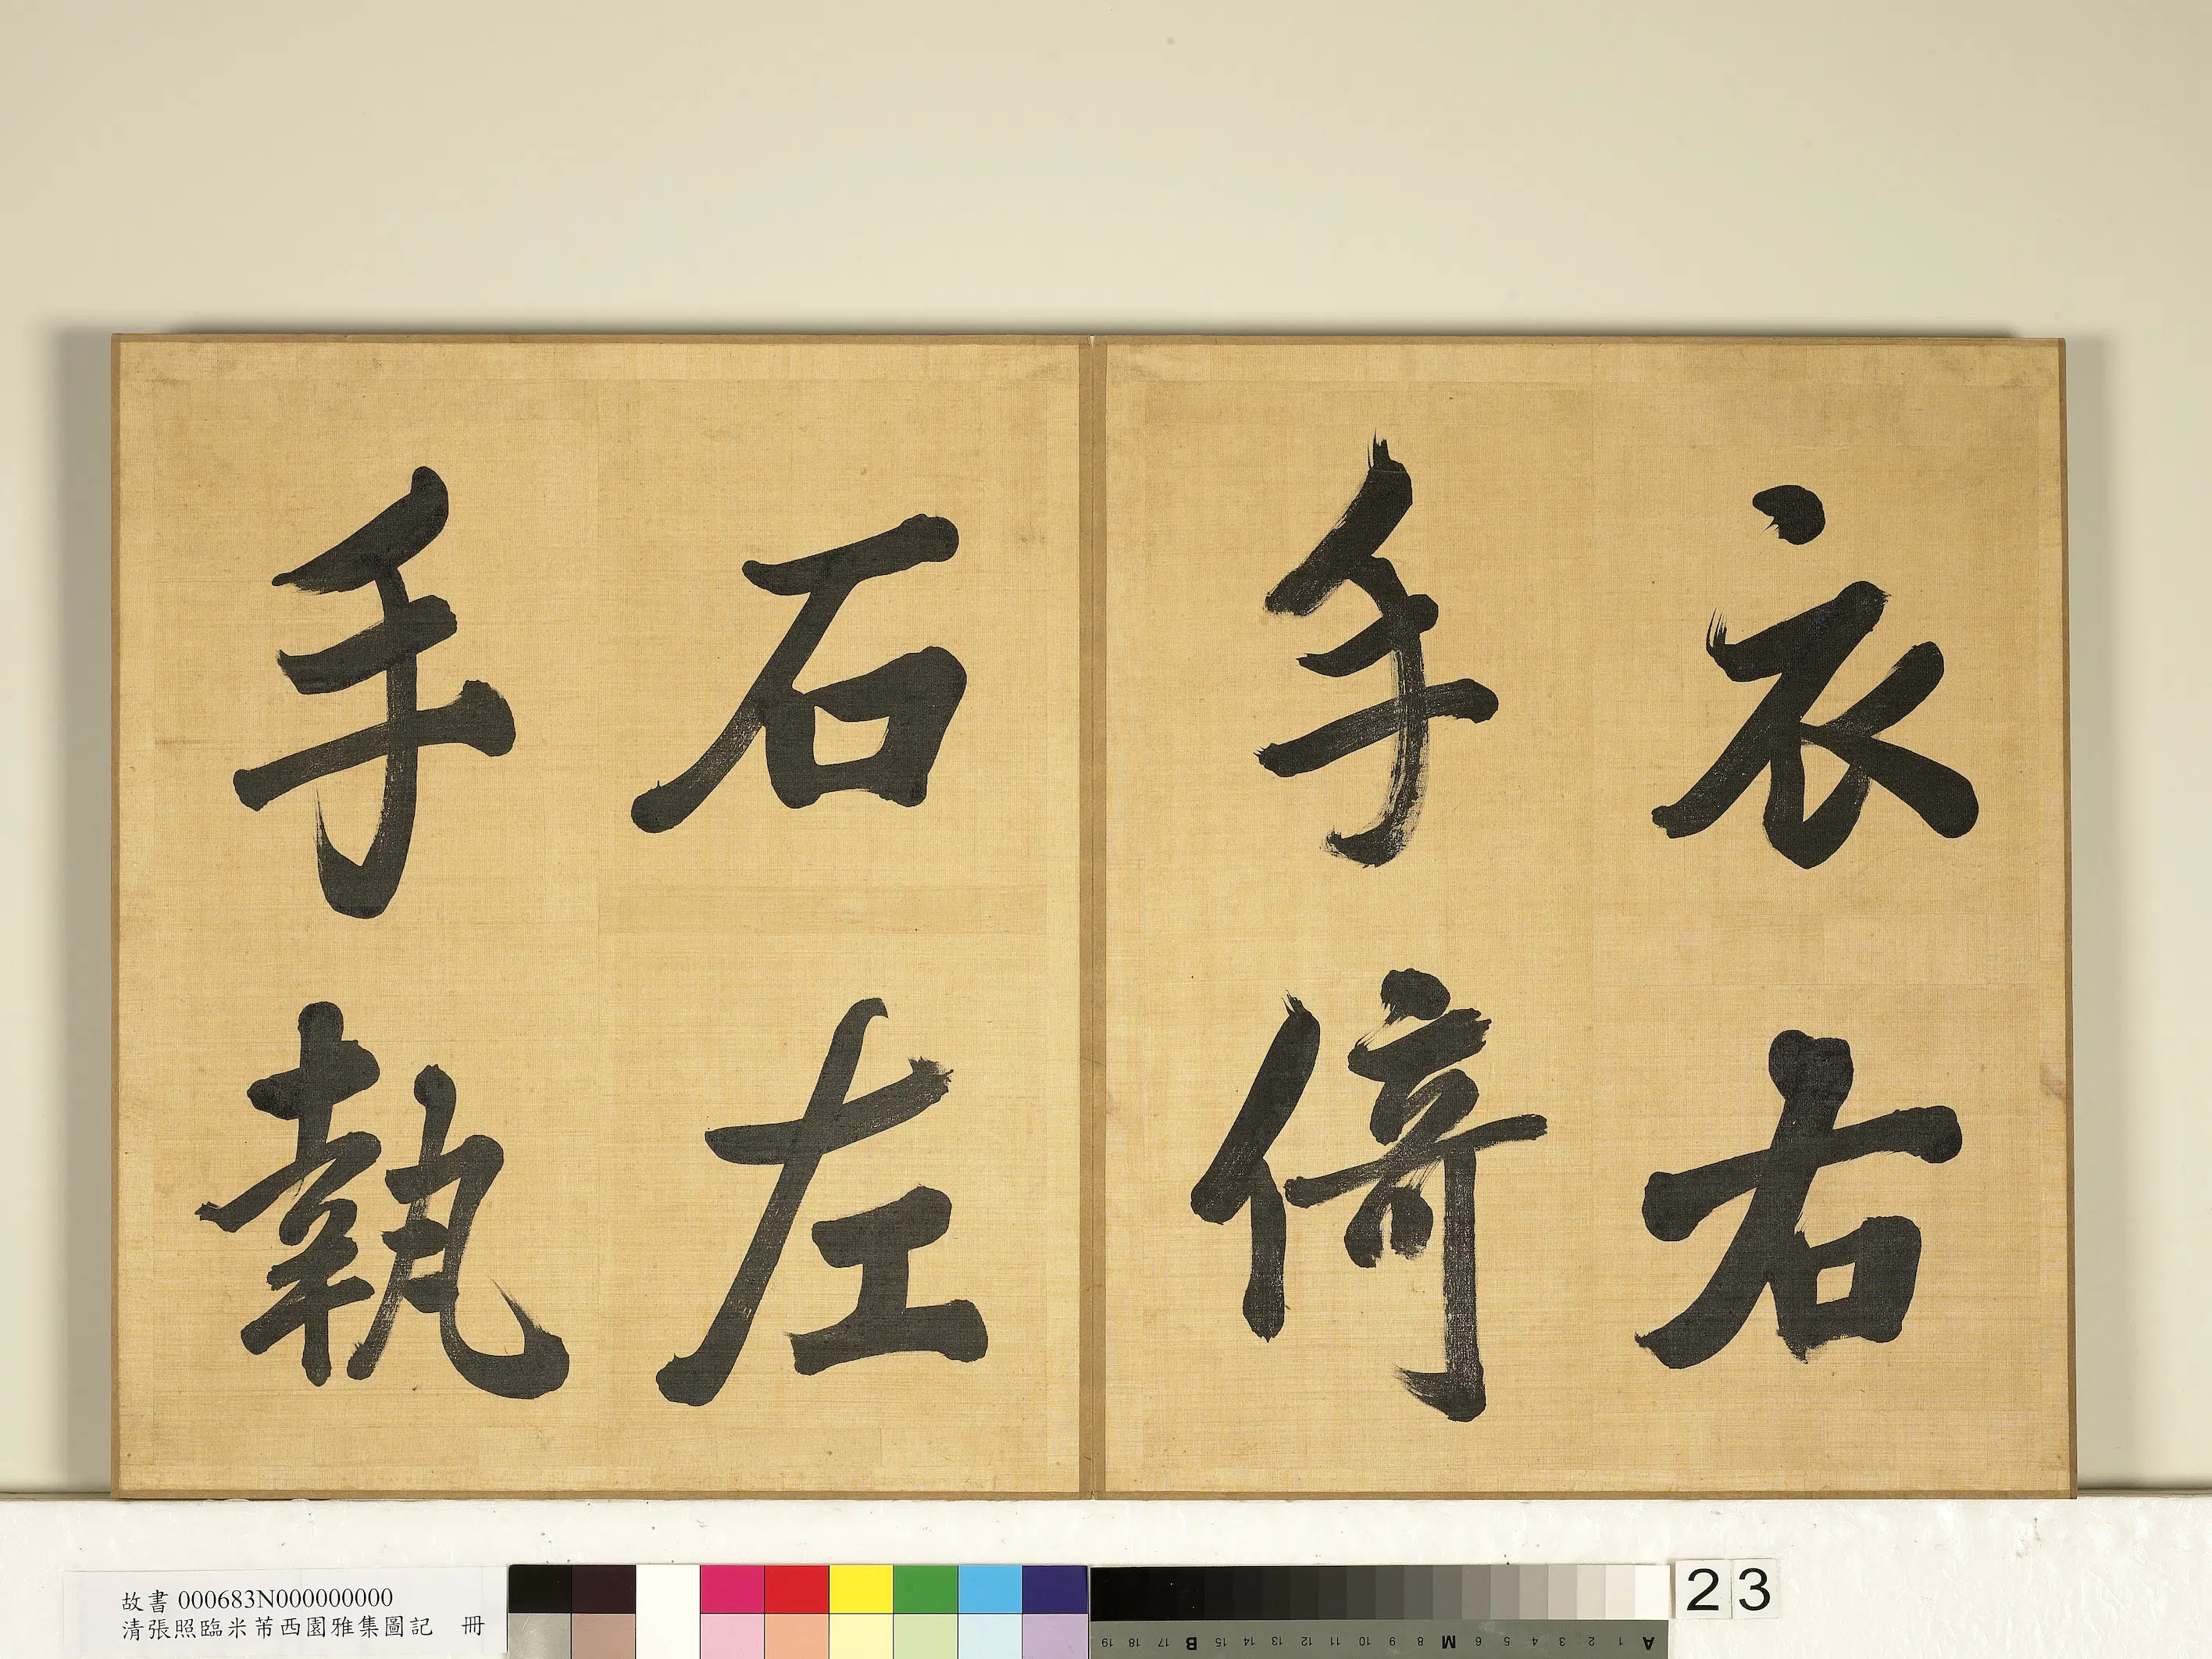 衣右
手倚
石左
手執
故書 000683N000000000
清張照臨米芾西園雅集圖記 冊
23
19 18 17 B 15 14 13 12 11 10 9 8 M 6 5 4 3 2 1 A